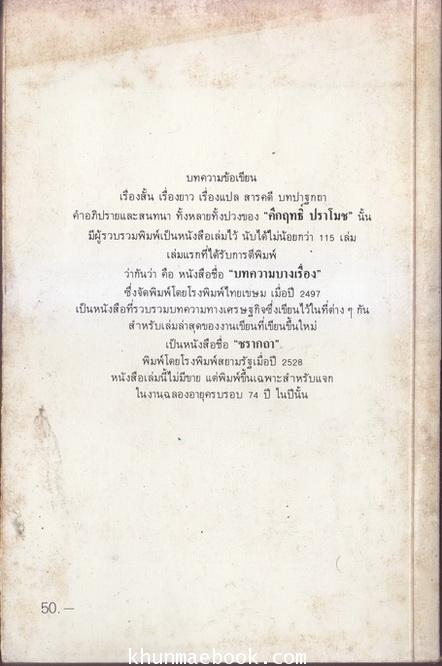 บทความข้อเขียน
เรื่องสั้น เรื่องยาว เรื่องแปล สารคดี บทปาฐกถา
คำอภิปรายและสนทนา ทั้งหลายทั้งปวงของ "คึกฤทธิ์ ปราโมช" นั้น
มีผู้รวบรวมพิมพ์เป็นหนังสือเล่มไว้ นับได้ไม่น้อยกว่า 115 เล่ม
เล่มแรกที่ได้รับการตีพิมพ์
ว่ากันว่า คือ หนังสือชื่อ "บทความบางเรื่อง"
ซึ่งจัดพิมพ์โดยโรงพิมพ์ไทยเขษม เมื่อปี 2497
เป็นหนังสือที่รวบรวมบทความทางเศรษฐกิจซึ่งเขียนไว้ในที่ต่าง ๆ กัน
สำหรับเล่มล่าสุดของงานเขียนที่เขียนขึ้นใหม่
เป็นหนังสือชื่อ "ชรากถา"
พิมพ์โดยโรงพิมพ์สยามรัฐเมื่อปี 2528
หนังสือเล่มนี้ไม่มีขาย แต่พิมพ์ขึ้นเฉพาะสำหรับแจก
ในงานฉลองอายุครบรอบ 74 ปี ในปีนั้น
50.—
khunmaebook.com